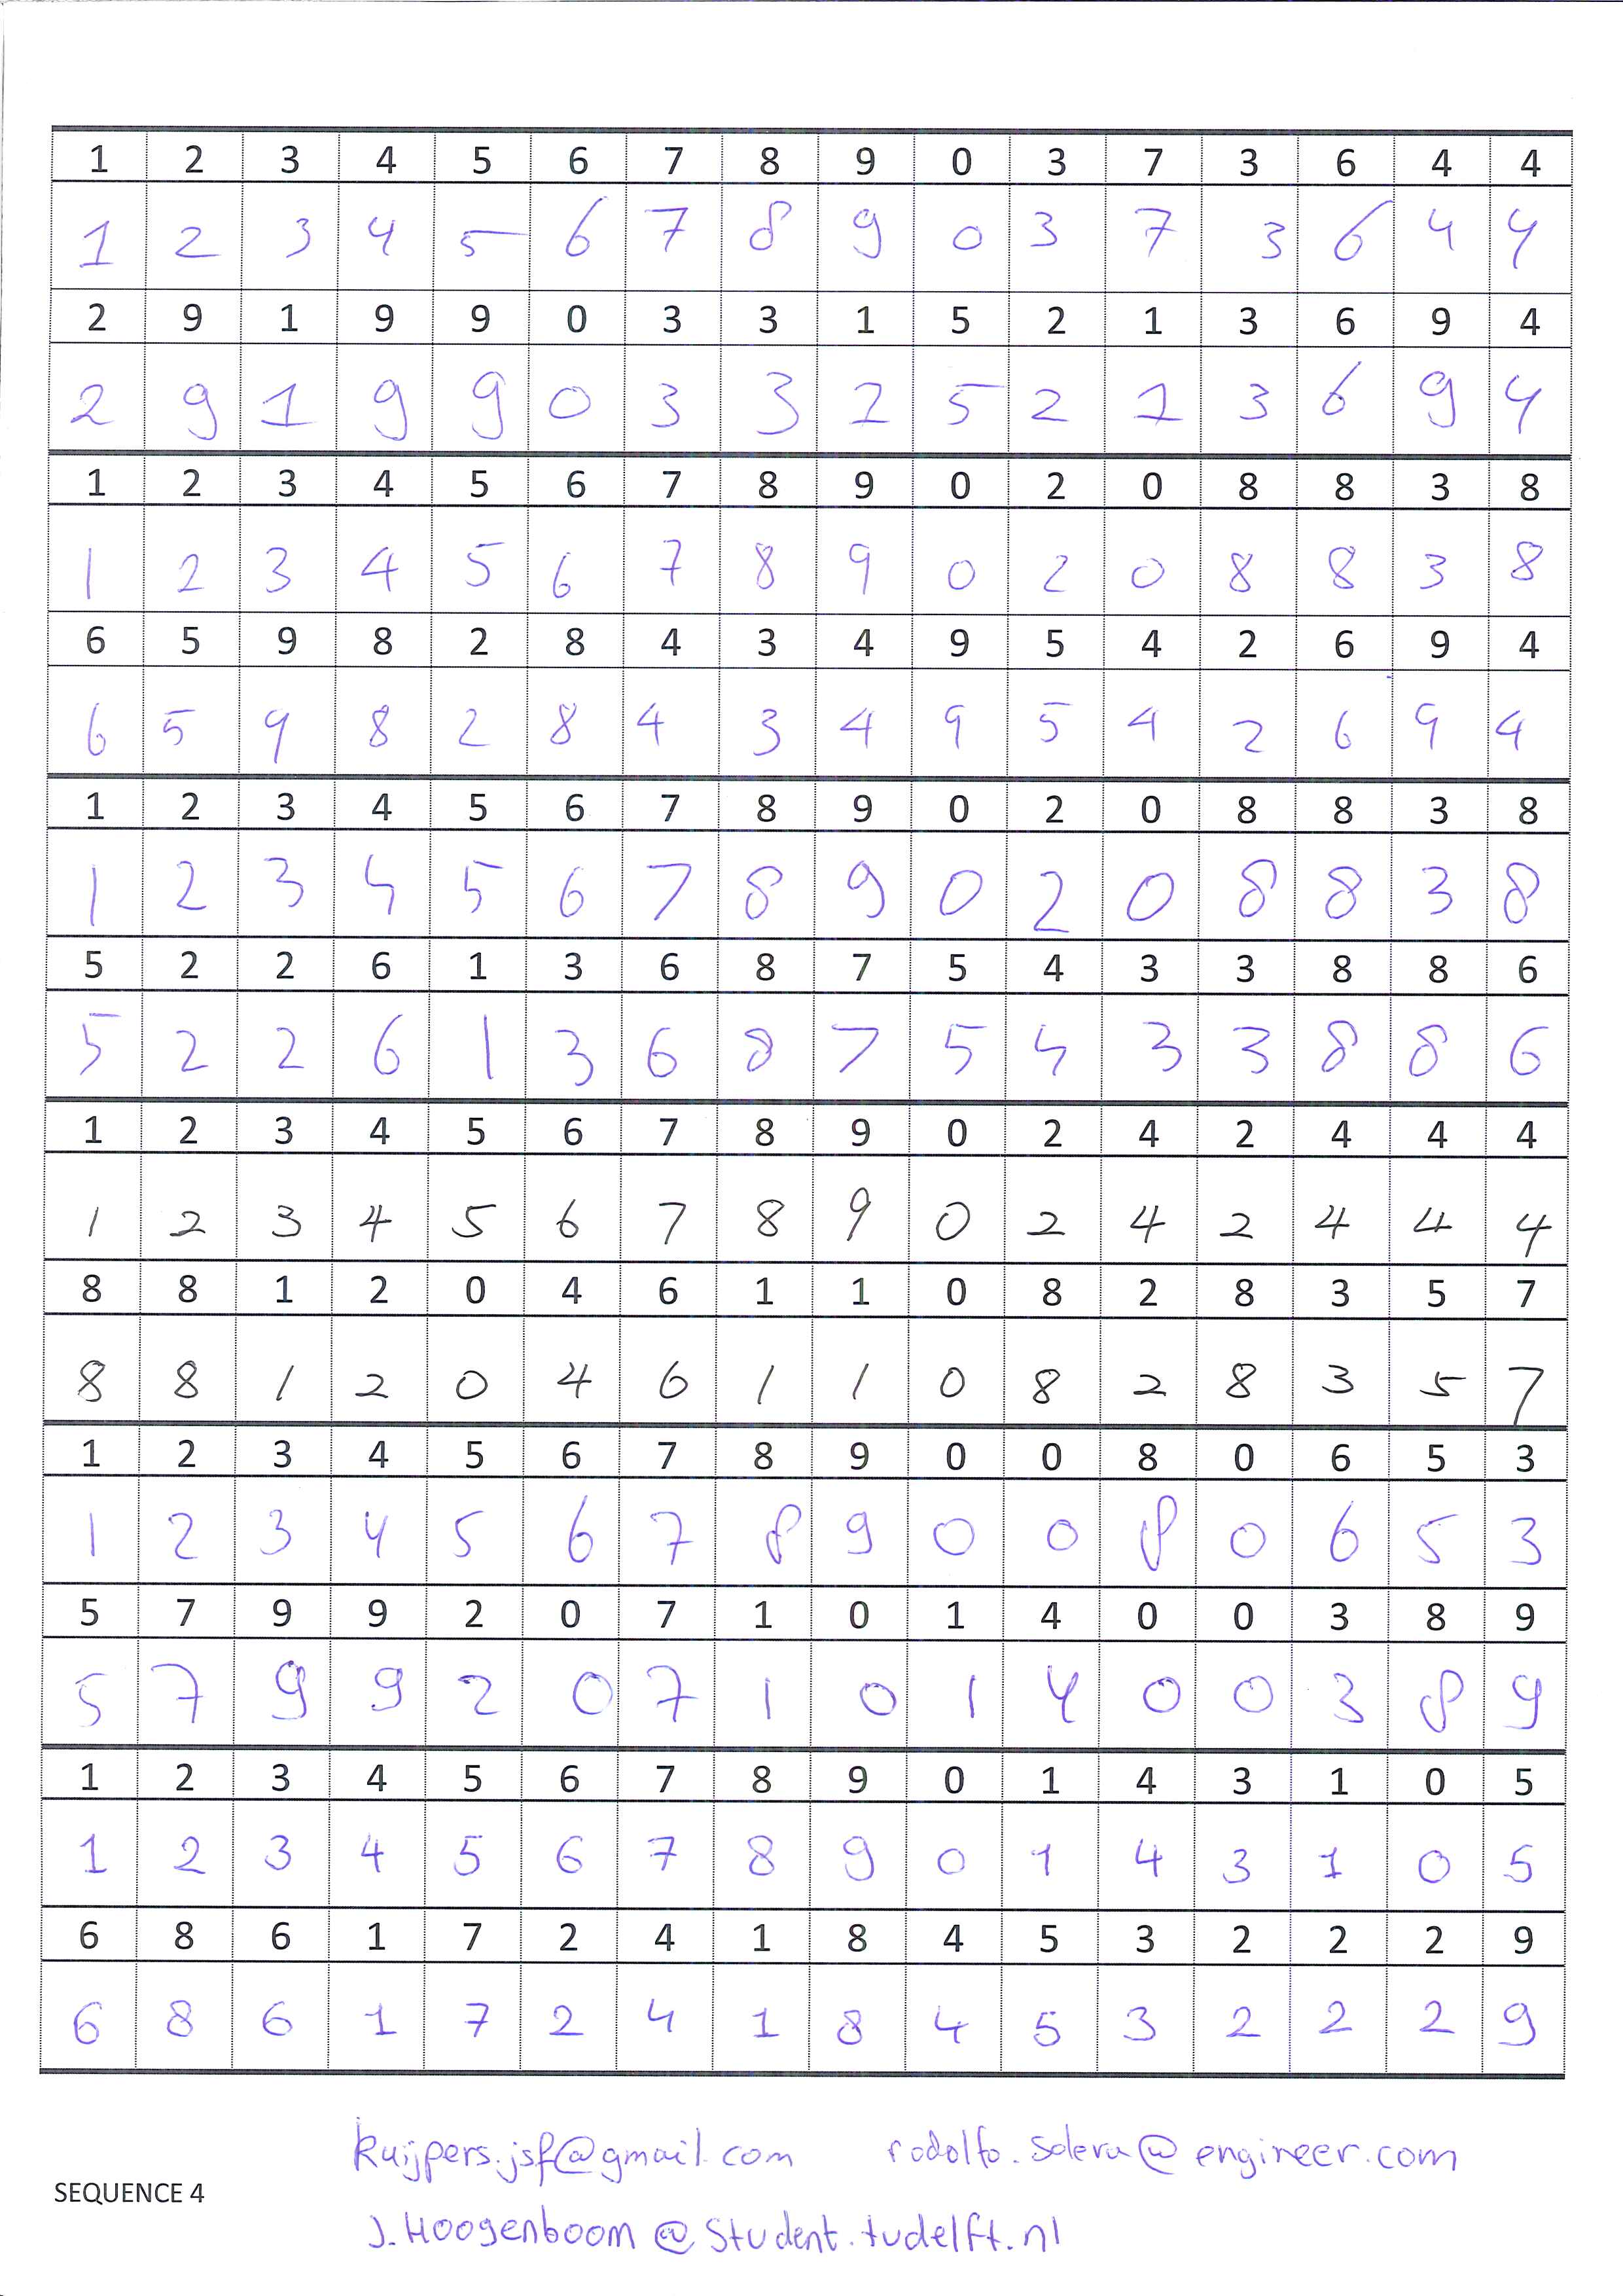 1 2 3 4 5 6 7 8 9 0 3 7 3 6 4 4
1 2 3 4 5 6 7 8 9 0 3 7 3 6 4 4
2 9 1 9 9 0 3 3 1 5 2 1 3 6 9 4
2 9 1 9 9 0 3 3 1 5 2 1 3 6 9 4
1 2 3 4 5 6 7 8 9 0 2 0 8 8 3 8
1 2 3 4 5 6 7 8 9 0 2 0 8 8 3 8
6 5 9 8 2 8 4 3 4 9 5 4 2 6 9 4
6 5 9 8 2 8 4 3 4 9 5 4 2 6 9 4
1 2 3 4 5 6 7 8 9 0 2 0 8 8 3 8
1 2 3 4 5 6 7 8 9 0 2 0 8 8 3 8
5 2 2 6 1 3 6 8 7 5 4 3 3 8 8 6
5 2 2 6 1 3 6 8 7 5 4 3 3 8 8 6
1 2 3 4 5 6 7 8 9 0 2 4 2 4 4 4
1 2 3 4 5 6 7 8 9 0 2 4 2 4 4 4
8 8 1 2 0 4 6 1 1 0 8 2 8 3 5 7
8 8 1 2 0 4 6 1 1 0 8 2 8 3 5 7
1 2 3 4 5 6 7 8 9 0 0 8 0 6 5 3
1 2 3 4 5 6 7 8 9 0 0 8 0 6 5 3
5 7 9 9 2 0 7 1 0 1 4 0 0 3 8 9
5 7 9 9 2 0 7 1 0 1 4 0 0 3 8 9
1 2 3 4 5 6 7 8 9 0 1 4 3 1 0 5
1 2 3 4 5 6 7 8 9 0 1 4 3 1 0 5
6 8 6 1 7 2 4 1 8 4 5 3 2 2 2 9
6 8 6 1 7 2 4 1 8 4 5 3 2 2 2 9
kuijpers.jsf@gmail.com rodolfo.solera@engineer.com
SEQUENCE 4
J.Hoogenboom@student.tudelft.nl